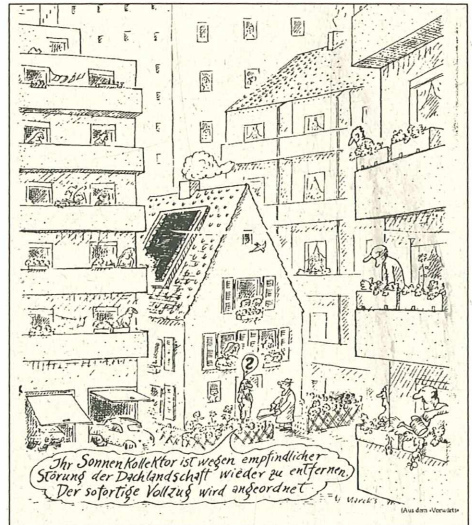 ?
Ihr Sonnenkollektor ist wegen empfindlicher
Störung der Dachlandschaft wieder zu entfernen.
Der sofortige Vollzug wird angeordnet
Marcks
(Aus dem »Vorwärts«